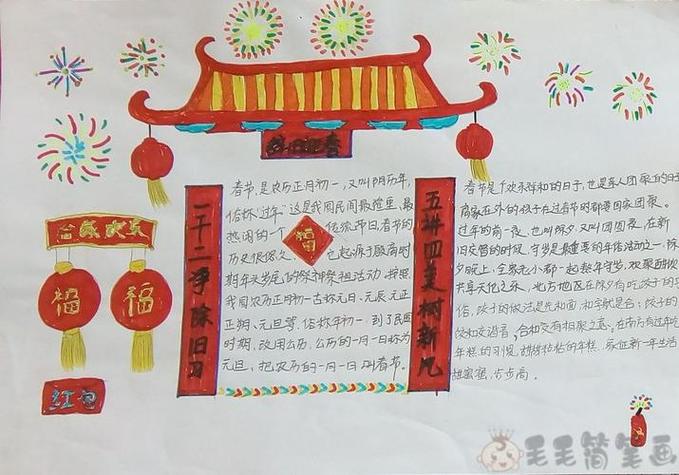 辞旧迎春
合家欢乐
福
福
红包
一干二净除旧习
五讲四美树新风
福
春节，是农历正月初一，又叫阴历年，
俗称"过年"这是我国民间最隆重、最
热闹的一个
传统节日，春节的
历史很悠久，
它起源于殷商时
期年头岁尾的祭神祭祖活动，按照
我国农历正月初一古称元日、元辰、元正
正朔、元旦等，俗称年初一，到了民国
时期，改用公历，公历的一月一日称为
元旦，把农历的一月一日叫春节。
春节是个欢乐祥和的日子，也是亲人团聚的日子
离家在外的孩子在过春节时都要回家团聚。
过年的前一夜，也叫除夕，又叫团圆夜，在新
旧交替的时候，守岁是最重要的年俗活动之一，除
夕晚上，全家老小都一起熬年守岁，欢聚酣饮
共享天伦之乐，北方地区在除夕有吃饺子的习
俗，饺子的做法是先和面，和字就是合；饺子的
饺和交谐音，合和交有相聚之意。在南方有过年吃
年糕的习惯，甜甜粘粘的年糕，象征新一年生活
甜蜜蜜，步步高。
毛毛简笔画